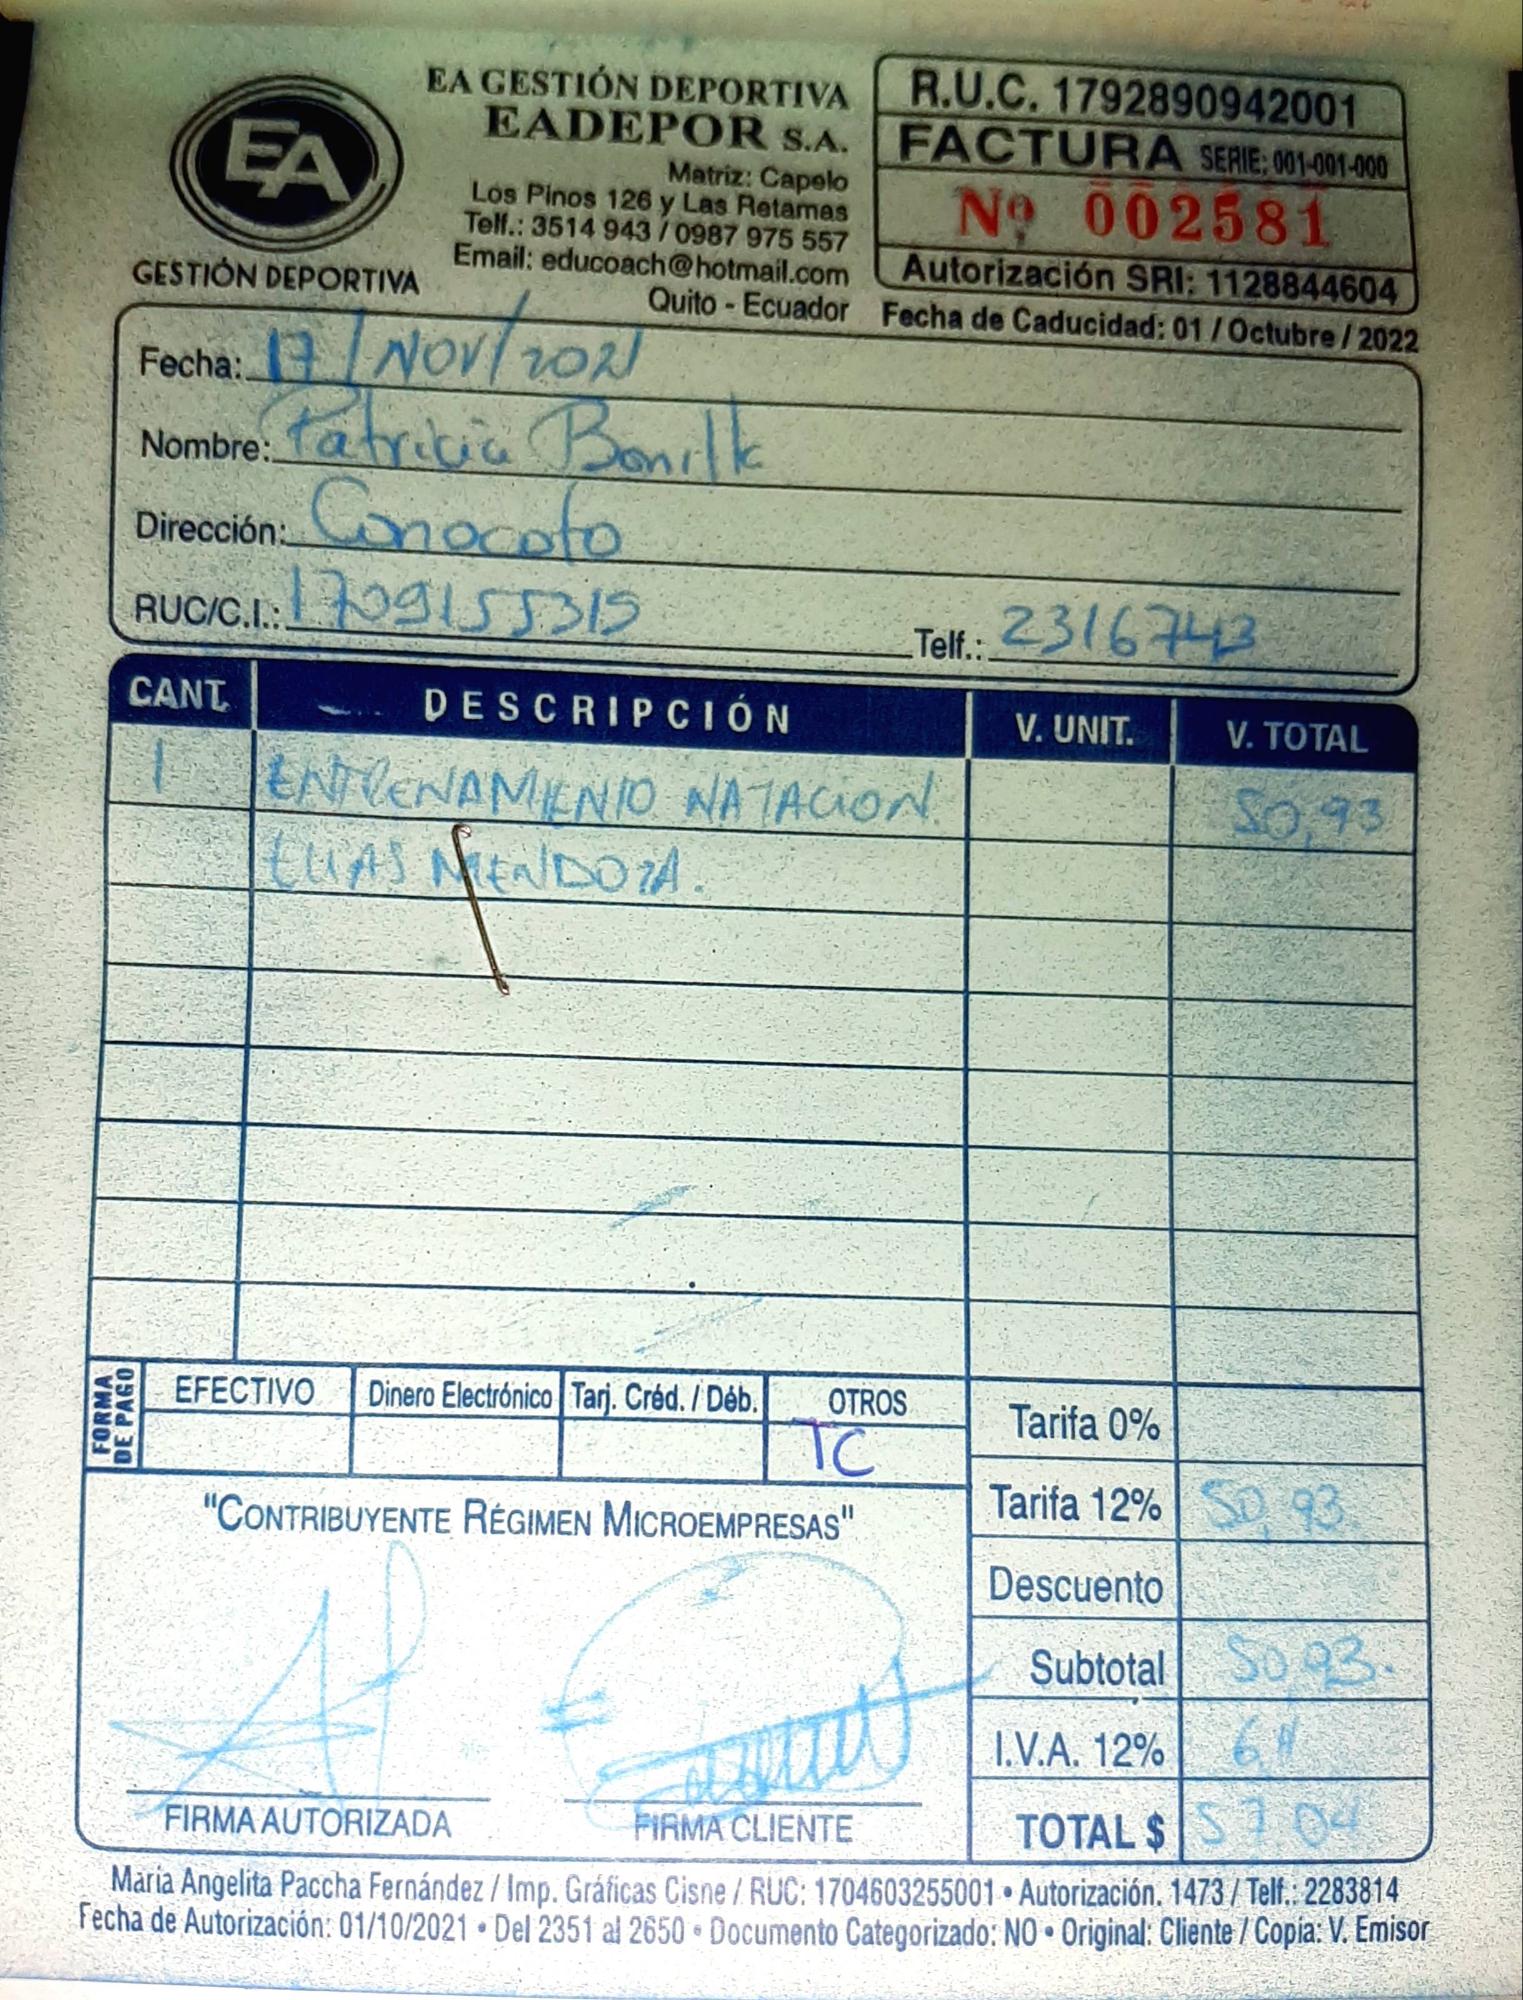 EA
GESTIÓN DEPORTIVA
EA GESTIÓN DEPORTIVA
EADEPOR S.A.
Matriz: Capelo
Los Pinos 126 y Las Retamas
Telf.: 3514 943 / 0987 975 557
Email: educoach@hotmail.com
Quito - Ecuador
R.U.C. 1792890942001
FACTURA SERIE: 001-001-000
Nº 002581
Autorización SRI: 1128844604
Fecha de Caducidad: 01 / Octubre / 2022
Fecha: 17/NOV/2021
Nombre: Patricia Bonilla
Dirección: Conocoto
RUC/C.I.: 1709155315 Telf.: 2316743
CANT. DESCRIPCIÓN V. UNIT. V. TOTAL
1 ENTRENAMIENTO NATACION. 50,93
ELIAS MENDOZA.
FORMA DE PAGO
EFECTIVO Dinero Electrónico Tarj. Créd. / Déb. OTROS
TC
Tarifa 0%
Tarifa 12% 50,93.
Descuento
Subtotal 50,93.
I.V.A. 12% 6,11
TOTAL $ 57,04
"CONTRIBUYENTE RÉGIMEN MICROEMPRESAS"
FIRMA AUTORIZADA FIRMA CLIENTE
María Angelita Paccha Fernández / Imp. Gráficas Cisne / RUC: 1704603255001 • Autorización. 1473 / Telf.: 2283814
Fecha de Autorización: 01/10/2021 • Del 2351 al 2650 • Documento Categorizado: NO • Original: Cliente / Copia: V. Emisor